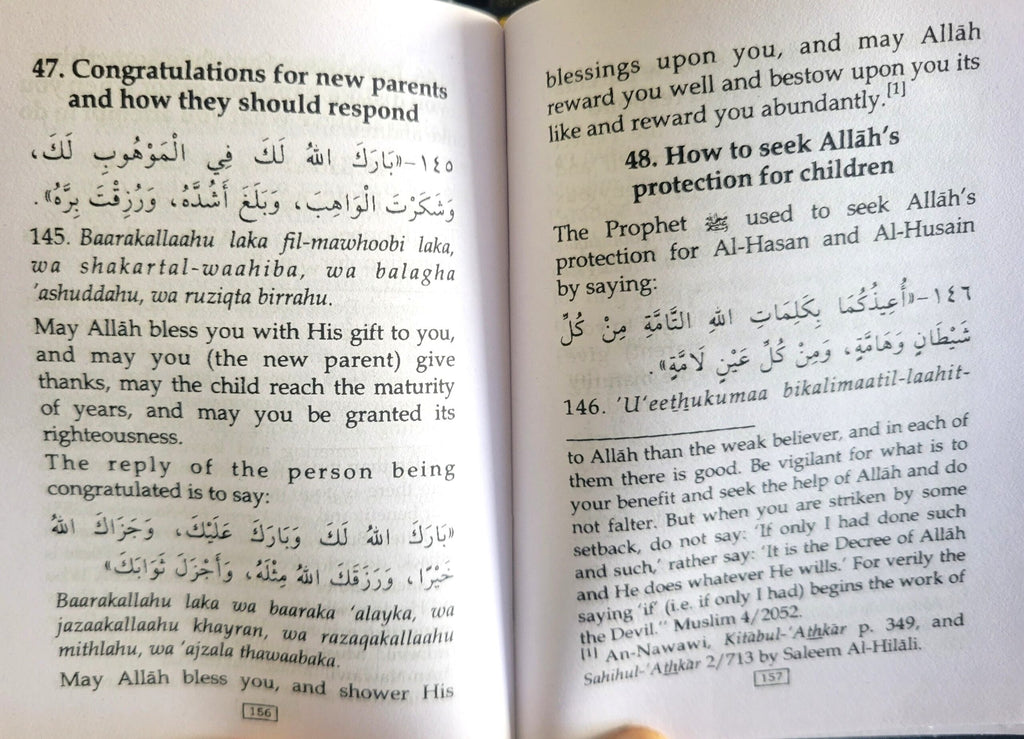 47. Congratulations for new parents
and how they should respond
١٤٥–«بَارَكَ اللهُ لَكَ فِي الْمَوْهُوبِ لَكَ،
وَشَكَرْتَ الْوَاهِبَ، وَبَلَغَ أَشُدَّهُ، وَرُزِقْتَ بِرَّهُ».
145. Baarakallaahu laka fil-mawhoobi laka,
wa shakartal-waahiba, wa balagha
'ashuddahu, wa ruziqta birrahu.
May Allāh bless you with His gift to you,
and may you (the new parent) give
thanks, may the child reach the maturity
of years, and may you be granted its
righteousness.
The reply of the person being
congratulated is to say:
«بَارَكَ اللهُ لَكَ وَبَارَكَ عَلَيْكَ، وَجَزَاكَ اللهُ
خَيْرًا، وَرَزَقَكَ اللهُ مِثْلَهُ، وَأَجْزَلَ ثَوَابَكَ»
Baarakallahu laka wa baaraka 'alayka, wa
jazaakallaahu khayran, wa razaqakallaahu
mithlahu, wa 'ajzala thawaabaka.
May Allāh bless you, and shower His
156
blessings upon you, and may Allāh
reward you well and bestow upon you its
like and reward you abundantly.[1]
48. How to seek Allāh's
protection for children
The Prophet ﷺ used to seek Allāh's
protection for Al-Hasan and Al-Husain
by saying:
١٤٦–«أُعِيذُكُمَا بِكَلِمَاتِ اللهِ التَّامَّةِ مِنْ كُلِّ
شَيْطَانٍ وَهَامَّةٍ، وَمِنْ كُلِّ عَيْنٍ لَامَّةٍ».
146. 'U'eethukumaa bikalimaatil-laahit-
to Allāh than the weak believer, and in each of
them there is good. Be vigilant for what is to
your benefit and seek the help of Allāh and do
not falter. But when you are striken by some
setback, do not say: 'If only I had done such
and such,' rather say: 'It is the Decree of Allāh
and He does whatever He wills.' For verily the
saying 'if' (i.e. if only I had) begins the work of
the Devil." Muslim 4/2052.
[1] An-Nawawi, Kitābul-'Athkār p. 349, and
Sahihul-'Athkār 2/713 by Saleem Al-Hilāli.
157